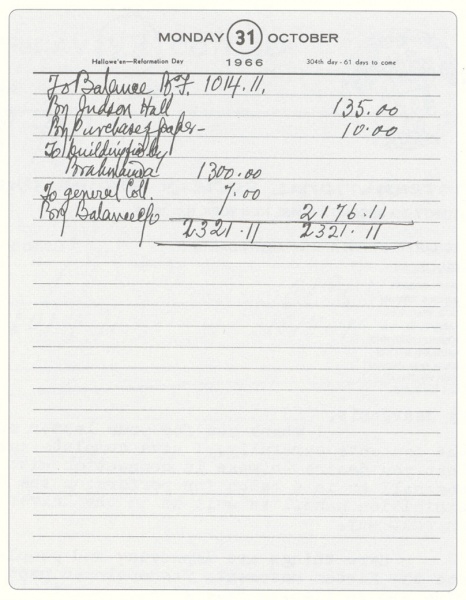 MONDAY 31 OCTOBER
Hallowe'en—Reformation Day 1966 304th day - 61 days to come
To Balance B.F. 1014.11.
By Judson Hall 135.00
By Purchase of paper- 10.00
To building fund by
Brahmanda 1300.00
To general Coll. 7.00
By Balance c/o 2176.11
2321.11 2321.11